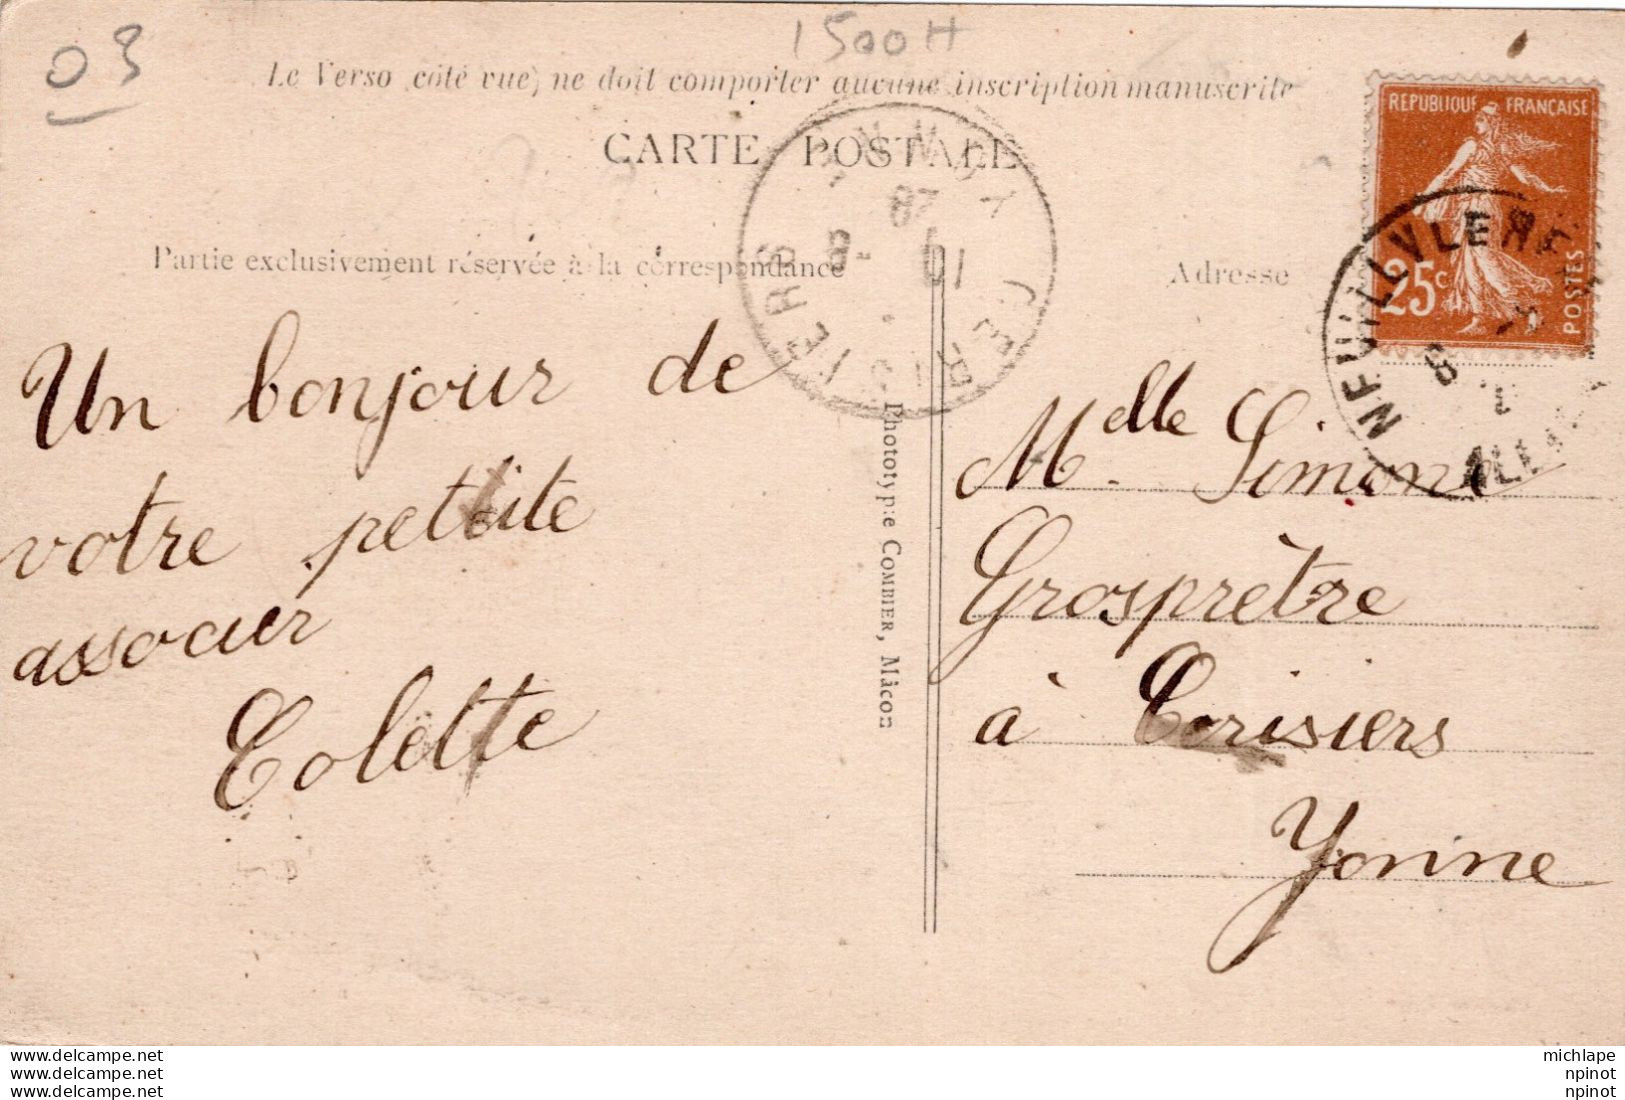 03
1500H
Le Verso (côté vue) ne doit comporter aucune inscription manuscrite
CARTE POSTALE
Partie exclusivement réservée à la correspondance
Adresse
REPUBLIQUE FRANÇAISE
25c
POSTES
NEUILLY LE RE
ALLIER
CERISIERS
YONNE
Un bonjour de
votre petite
associer
Colette
Phototypie COMBIER, Mâcon
Melle Simone
Grosprêtre
à Cerisiers
Yonne
delcampe.net
delcampe.net
delcampe.net
michlape
npinot
npinot